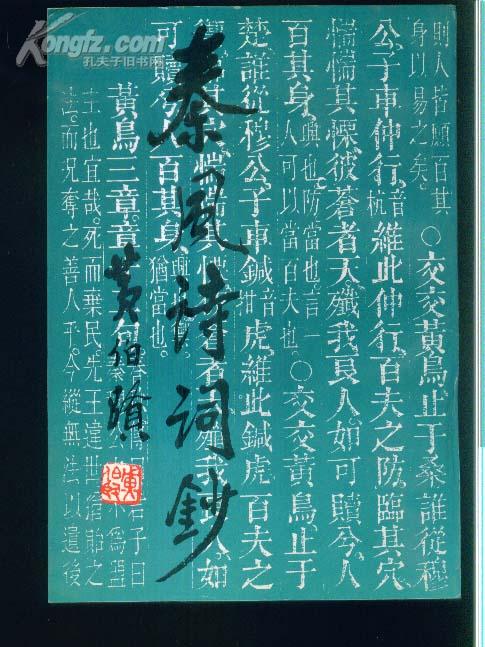 Kongfz.com
孔夫子旧书网
秦風詩詞鈔
黄伯
則人皆願百其
身以易之矣。
○交交黃鳥、止于桑、誰從穆
公、子車仲行、音杭維此仲行、百夫之防、臨其穴、
惴惴其慄、彼蒼者天、殲我良人、如可贖兮、人
百其身、興也防當也言一人可以當百夫也。○交交黃鳥、止于
楚、誰從穆公、子車鍼音鉗虎、維此鍼虎、百夫之
如
可贖兮人百其身、
猶當也。
黃鳥三章章
子曰
為盟
主也宜哉。死而棄民先王違世猶貽之
法。而況奪之善人乎。今縱無法以遺後